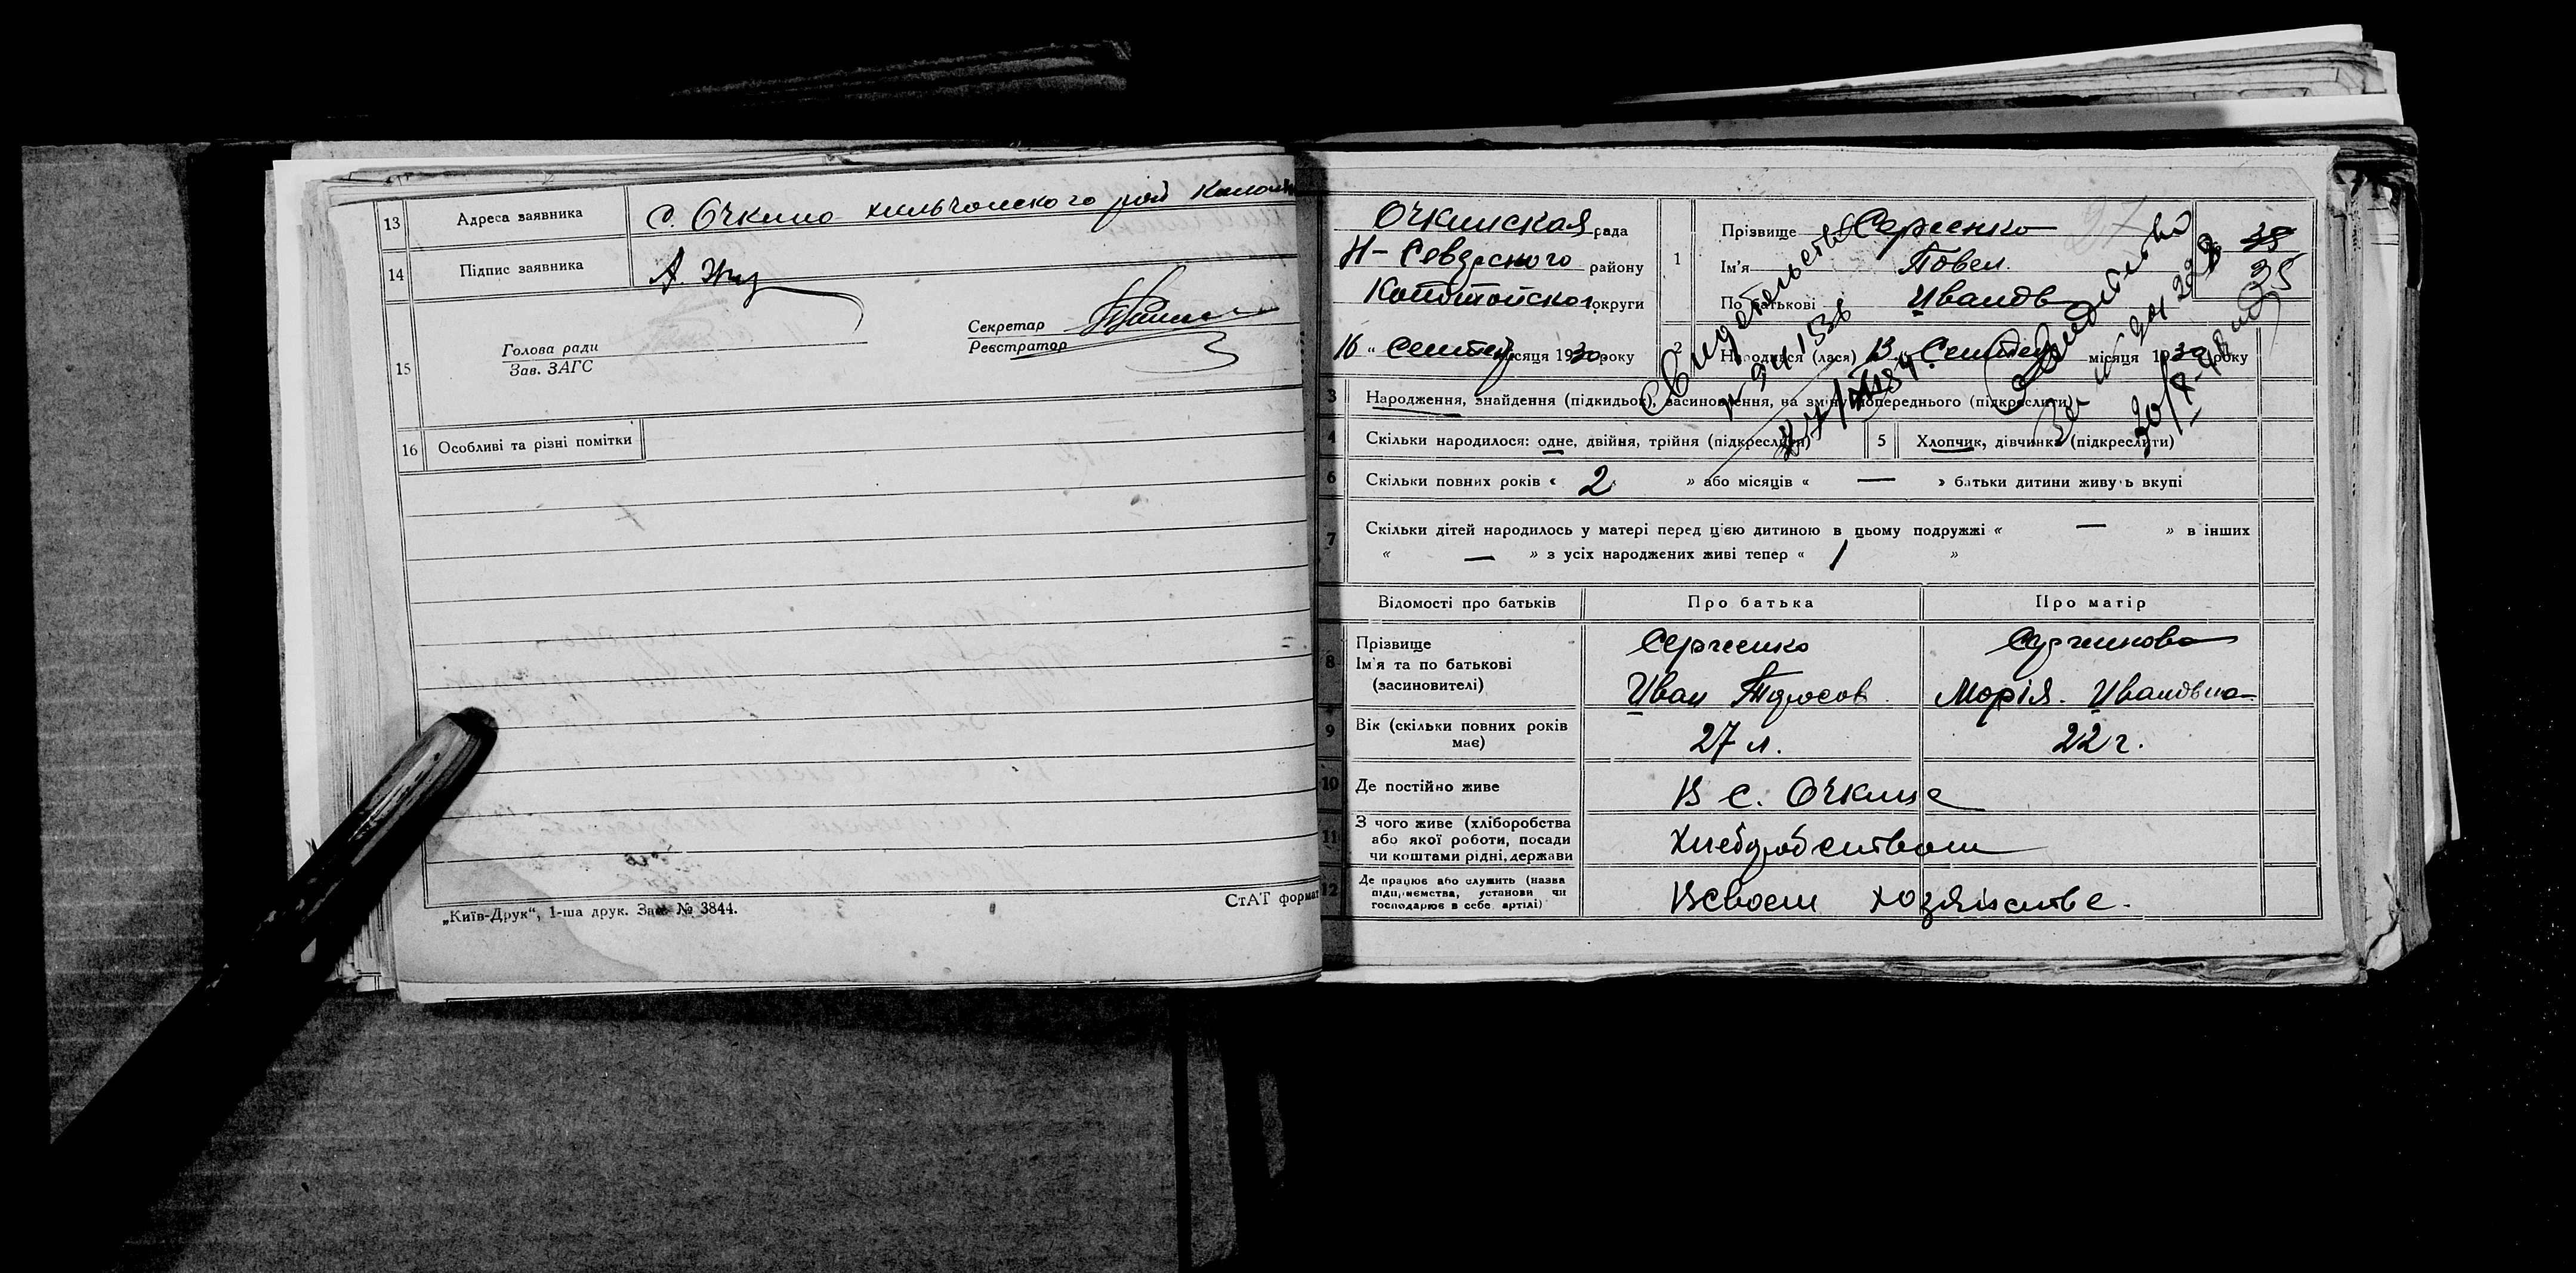 13 Адреса заявника С. Очкино хильчанского рай
14 Підпис заявника
15 Голова ради
Зав. ЗАГС
Секретар
Реєстратор
16 Особливі та різні помітки
„Київ-Друк“, 1-ша друк. Зам. № 3844.
СтАТ формат
Очкинская рада
Н-Северского району
округи
16 “ Сентяб місяця 1930 року
1 Прізвище Сергеенко
Ім'я Повел.
По батькові Иванов
35
2 Народився (лася) 13 Сентяб місяця 1930 року
Свидетельство
3 Народження, знайдення (підкидьок), засиновлення, на зміну попереднього (підкреслити)
4 Скільки народилося: одне, двійня, трійня (підкреслити)
5 Хлопчик, дівчинка (підкреслити)
6 Скільки повних років « 2 » або місяців « — » батьки дитини живуть вкупі
7 Скільки дітей народилось у матері перед цією дитиною в цьому подружжі « — » в інших
« — » з усіх народжених живі тепер « 1 »
Відомості про батьків Про батька Про матір
8 Прізвище
Ім'я та по батькові
(засиновителі)
Сергеенко
Иван
Морія. Ивановна
9 Вік (скільки повних років
має) 27 л. 22 г.
10 Де постійно живе В с. Очкине
11 З чого живе (хліборобства
або якої роботи, посади
чи коштами рідні, держави
12 Де працює або служить (назва
підприємства, установи чи
господарює в себе, артілі)
В своем хозяйстве.